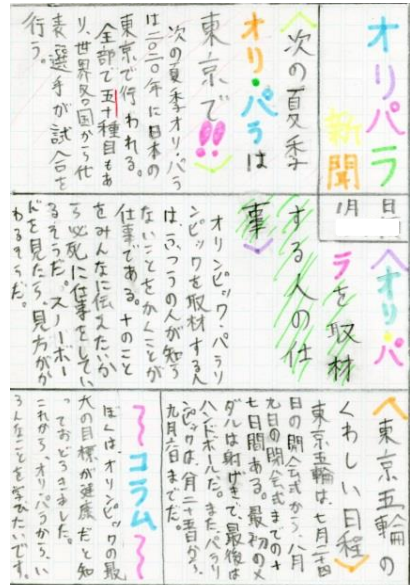 オリパラ
新聞
〈次の夏季
オリ・パラは
東京で!!〉
次の夏季オリ・パラ
は二〇二〇年に日本の
東京で行われる。
全部で五十種目もあ
り、世界各国から代
表選手が試合を
行う。
月
日
〈オリ・パ
ラを取材
する人の仕
事〉
オリンピック・パラリ
ンピックを取材する人
は、ふつうの人が知ら
ないことをかくことが
仕事である。そのこと
をみんなに伝えたいか
ら必死に仕事をしてい
るそうだ。スノーボー
ドを見たら、見方がか
わるそうだ。
〈東京五輪の
くわしい日程〉
東京五輪は、七月二十四
日の開会式から、八月
九日の閉会式までの十
七日間ある。最初のメ
ダルは射げきで、最後は
ハンドボールだ。また、パラリ
ンピックは、八月二十五日から、
九月六日までだ。
〜コラム〜
ぼくは、オリンピックの最
大の目標が健康だと知
っておどろきました。
これから、オリ・パラから、い
ろんなことを学びたいです。